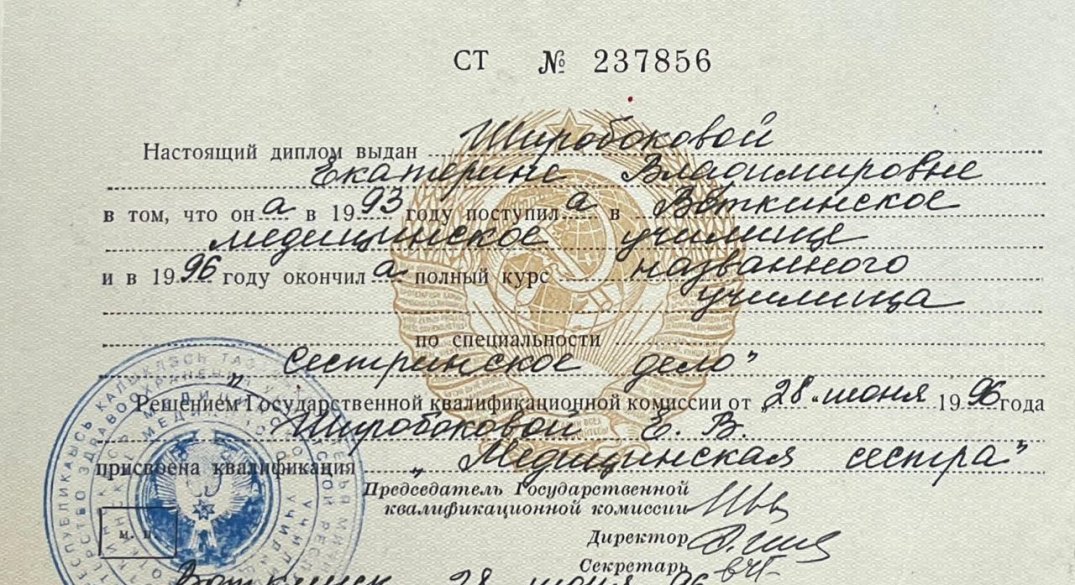 СТ № 237856
Настоящий диплом выдан Широбоковой
Екатерине Владимировне
в том, что он а в 19 93 году поступил а в Воткинское
медицинское училище
и в 19 96 году окончил а полный курс названного
училища
по специальности
„Сестринское дело"
Решением Государственной квалификационной комиссии от „28" июня 19 96 года
Широбоковой Е. В.
присвоена квалификация „Медицинская сестра"
Председатель Государственной
квалификационной комиссии
Директор
Секретарь
М. П.
Воткинск 28 июня 96